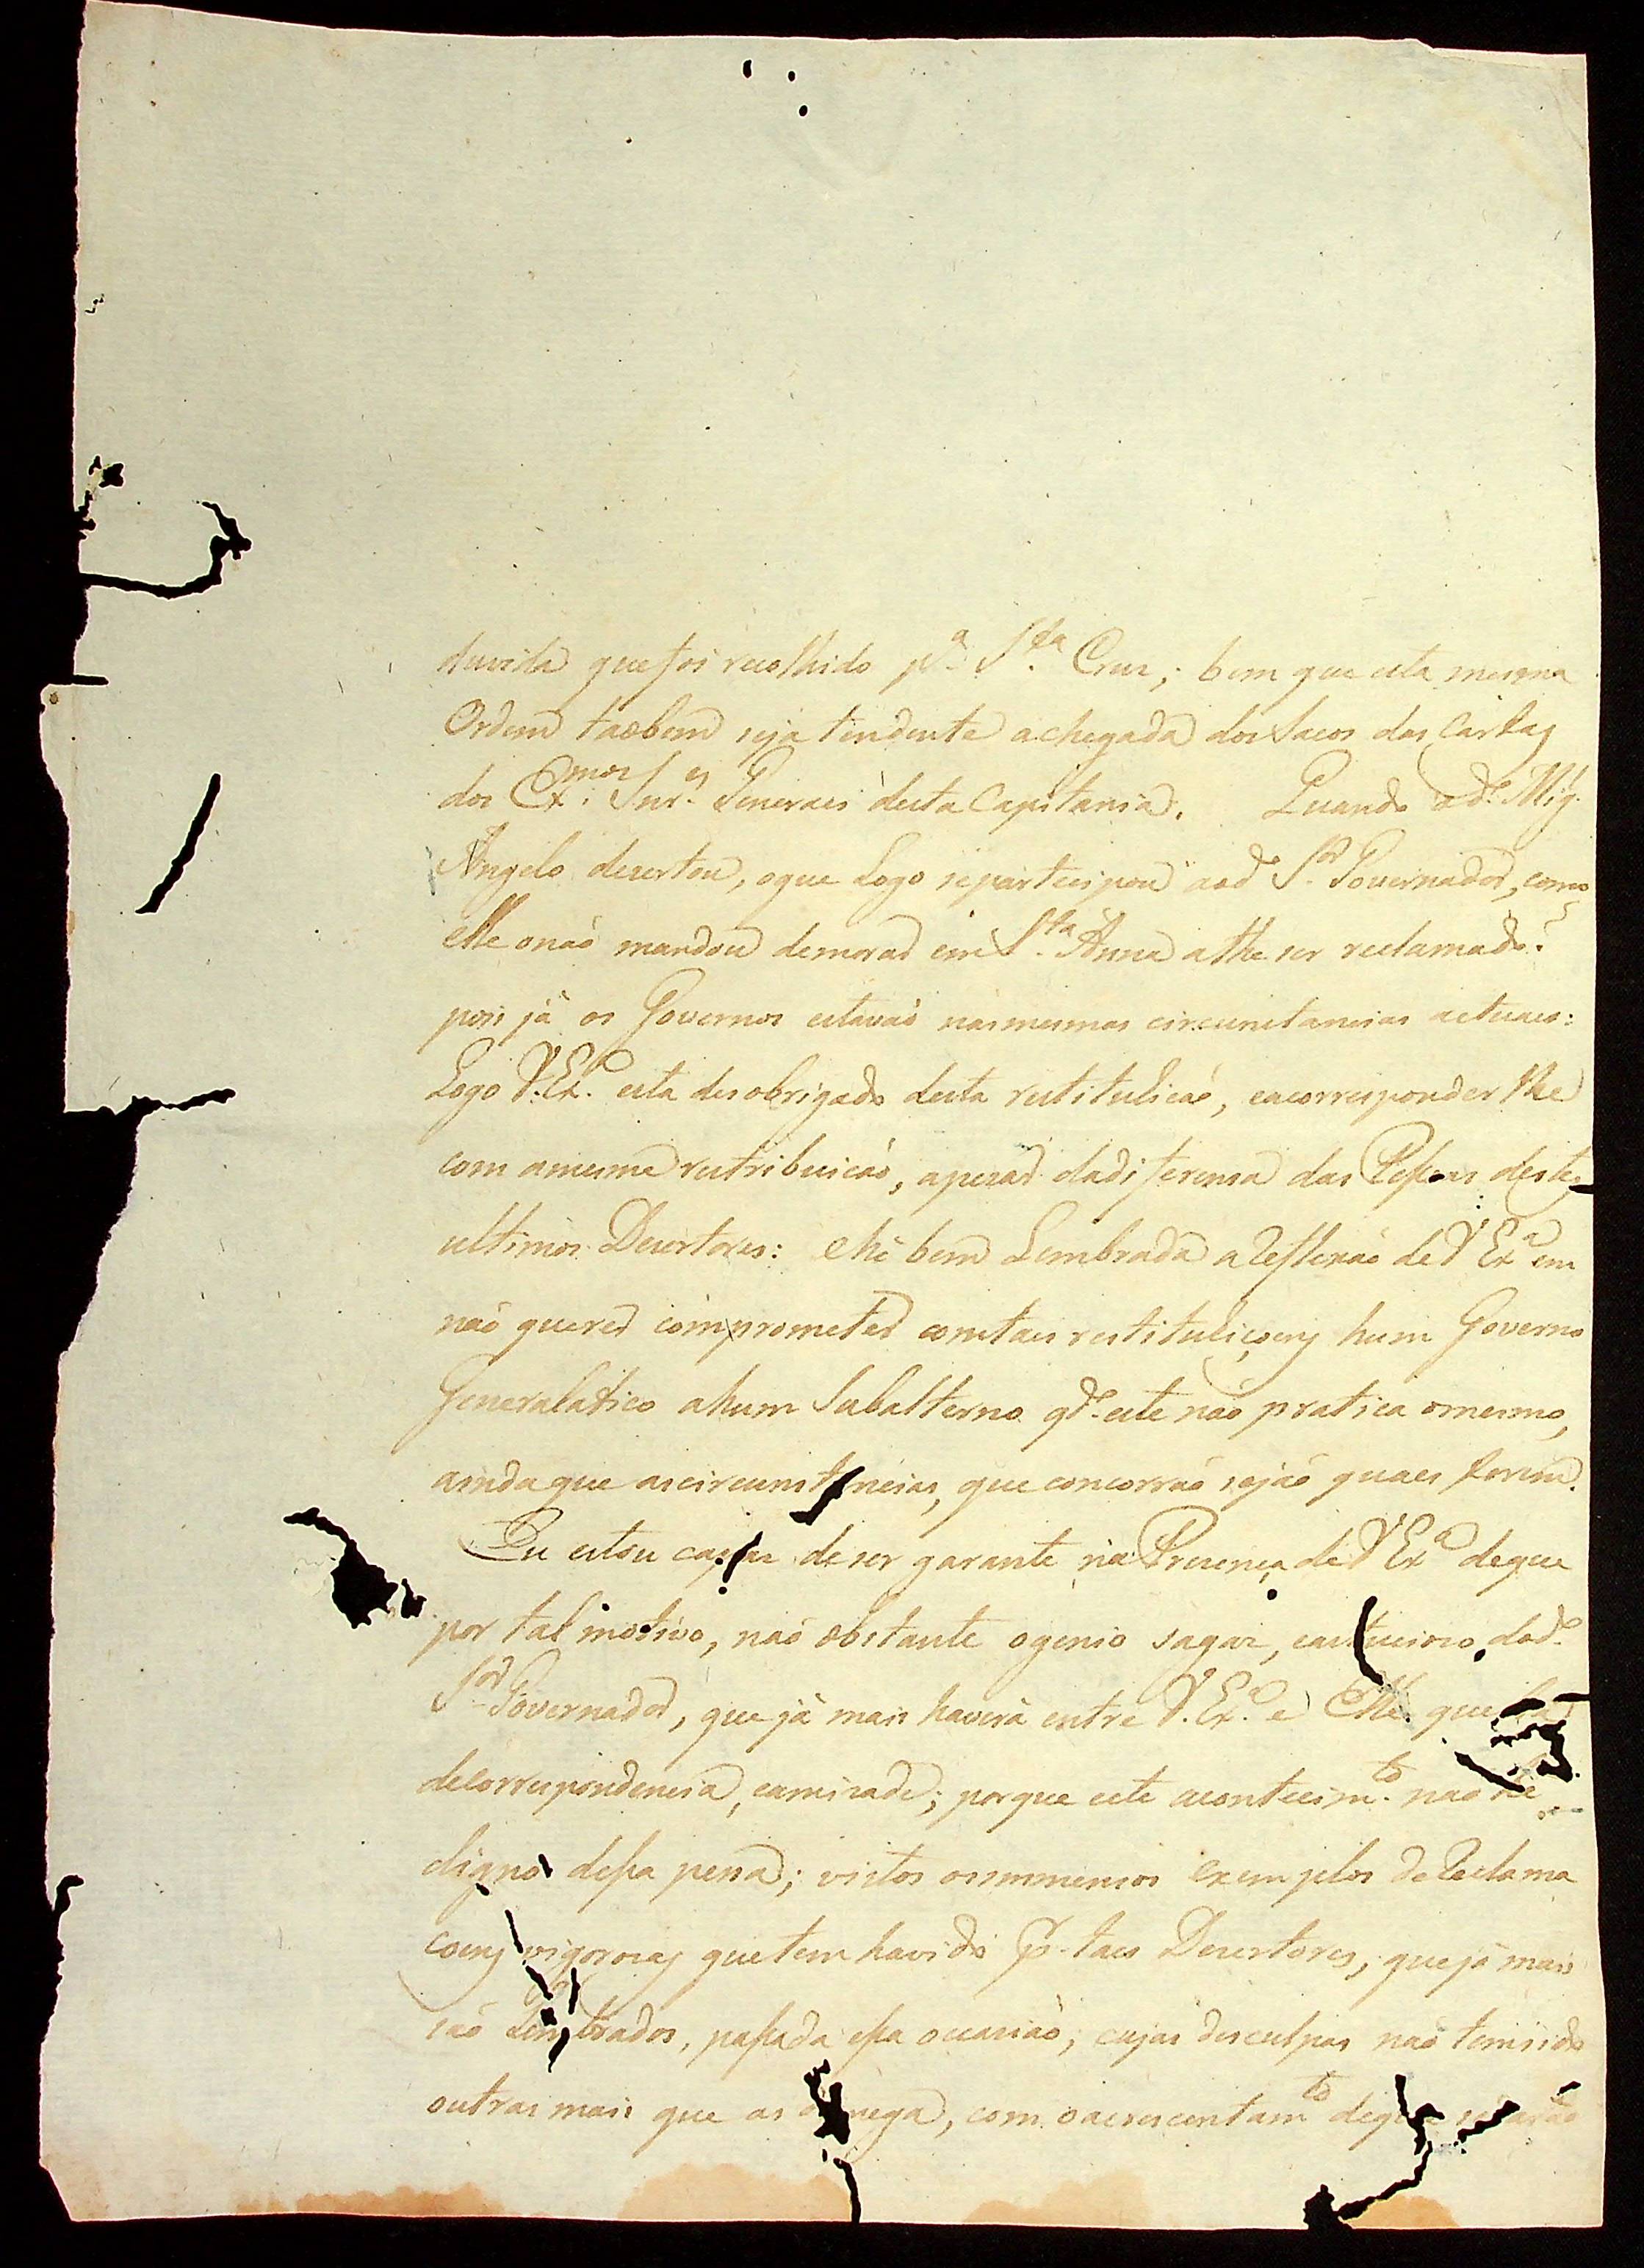 duvida que foi recolhido p.ª S.ta Cruz; bem que esta mesma
Ordem taobem seja tendente a chegada dos Sacos das Cartas
dos Ex.mos Snr.es Generaes desta Capitania. Quando o d.º Mig.
Angelo desertou, oque Logo separtecipou aod.º S.or Governador, como
elle onaõ mandou demorar em S.ta Anna athe ser reclamado?
pois já os Governos estavaõ nasmesmas circunstancias actuaes:
Logo V.Ex.ª esta desobrigado desta restituliçaõ, eacorresponder lhe
com amesma restribuiçaõ, apezar dadiferensa das Pessoas destes
ultimos Desertores: e hé bem Lembrada a Reflexaõ de V Ex.ª em
naõ querer comprometer comtaes restituliçoens hum Governo
Generalatico ahum Subalterno q.do este naõ pratica omesmo,
ainda que ascircunstancias, que concorraõ sejaõ quaes forem.
Eu estou capaz de ser garante na Prezença de V Ex.ª deque
por tal motivo, naõ obstante ogenio sagaz, eastucioso dod.º
S.or Governador, que já mais haverá entre V.Ex.ª e Elle
decorrespondencia, eamizade; porque este acontecim.to naõ he
digno dessa pena; vistos osimmensos exemplos de Reclama
coens vigorozas quetem havido p.r taes Desertores, queja mais
saõ Lembrados, passada essa occasiaõ; cujas desculpas naõ temsido
outras mais que as da nega, com oacrescentam.to deque